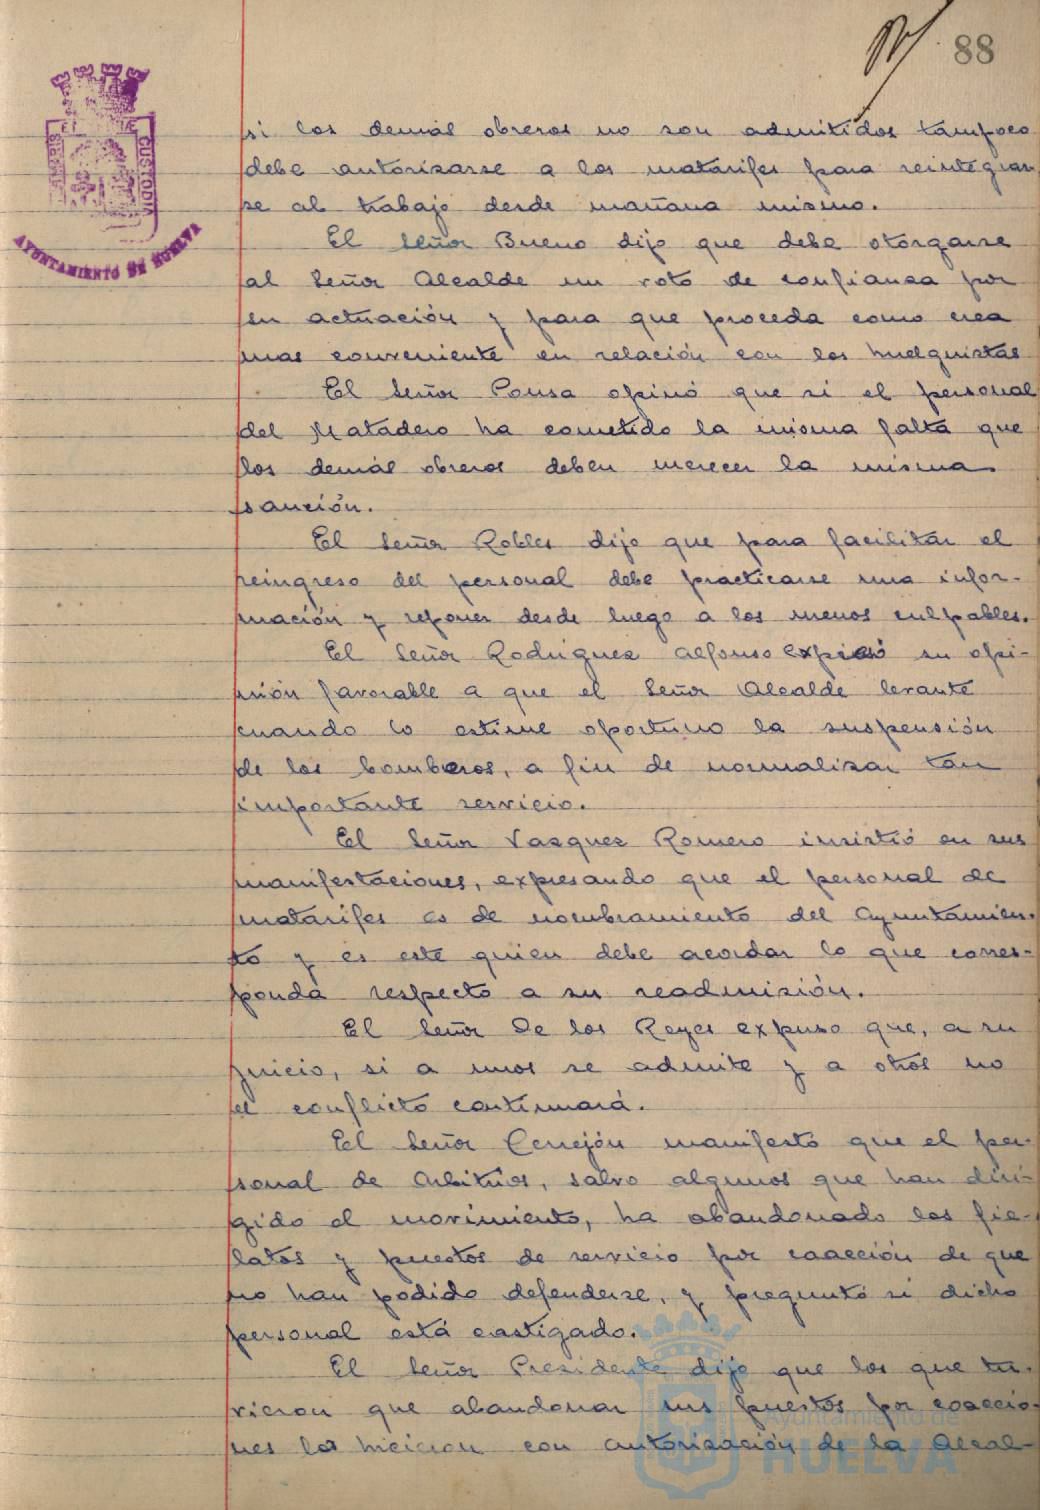 88
CUSTODIA
AYUNTAMIENTO DE HUELVA
si los demás obreros no son admitidos tampoco
debe autorizarse a los matarifes para reintegrar-
se al trabajo desde mañana mismo.
El Señor Bueno dijo que debe otorgarse
al Señor Alcalde un voto de confianza por
su actuación y para que proceda como crea
mas conveniente en relación con los huelguistas
El Señor Ponsa opinó que si el personal
del Matadero ha cometido la misma falta que
los demás obreros deben merecer la misma
sanción.
El Señor Robles dijo que para facilitar el
reingreso del personal debe practicarse una infor-
mación y reponer desde luego a los menos culpables.
El Señor Rodriguez Alfonso su opi-
nión favorable a que el Señor Alcalde levante
cuando lo estime oportuno la suspensión
de los bomberos, a fin de normalizar tan
importante servicio.
El Señor Vazquez Romero insistió en sus
manifestaciones, expresando que el personal de
matarifes es de nombramiento del Ayuntamien-
to y es este quien debe acordar lo que corres-
ponda respecto a su readmisión.
El Señor De los Reyes expuso que, a su
juicio, si a unos se admite y a otros no
el conflicto continuará.
El Señor Cerrejón manifestó que el per-
sonal de Arbitrios, salvo algunos que han diri-
gido el movimiento, ha abandonado los fie-
latos y puestos de servicio por coacción de que
no han podido defenderse, y preguntó si dicho
personal está castigado.
El Señor Presidente dijo que los que tu-
vieron que abandonar sus puestos por coaccio-
nes lo hicieron con autorización de la Alcal-
Ayuntamiento de
HUELVA